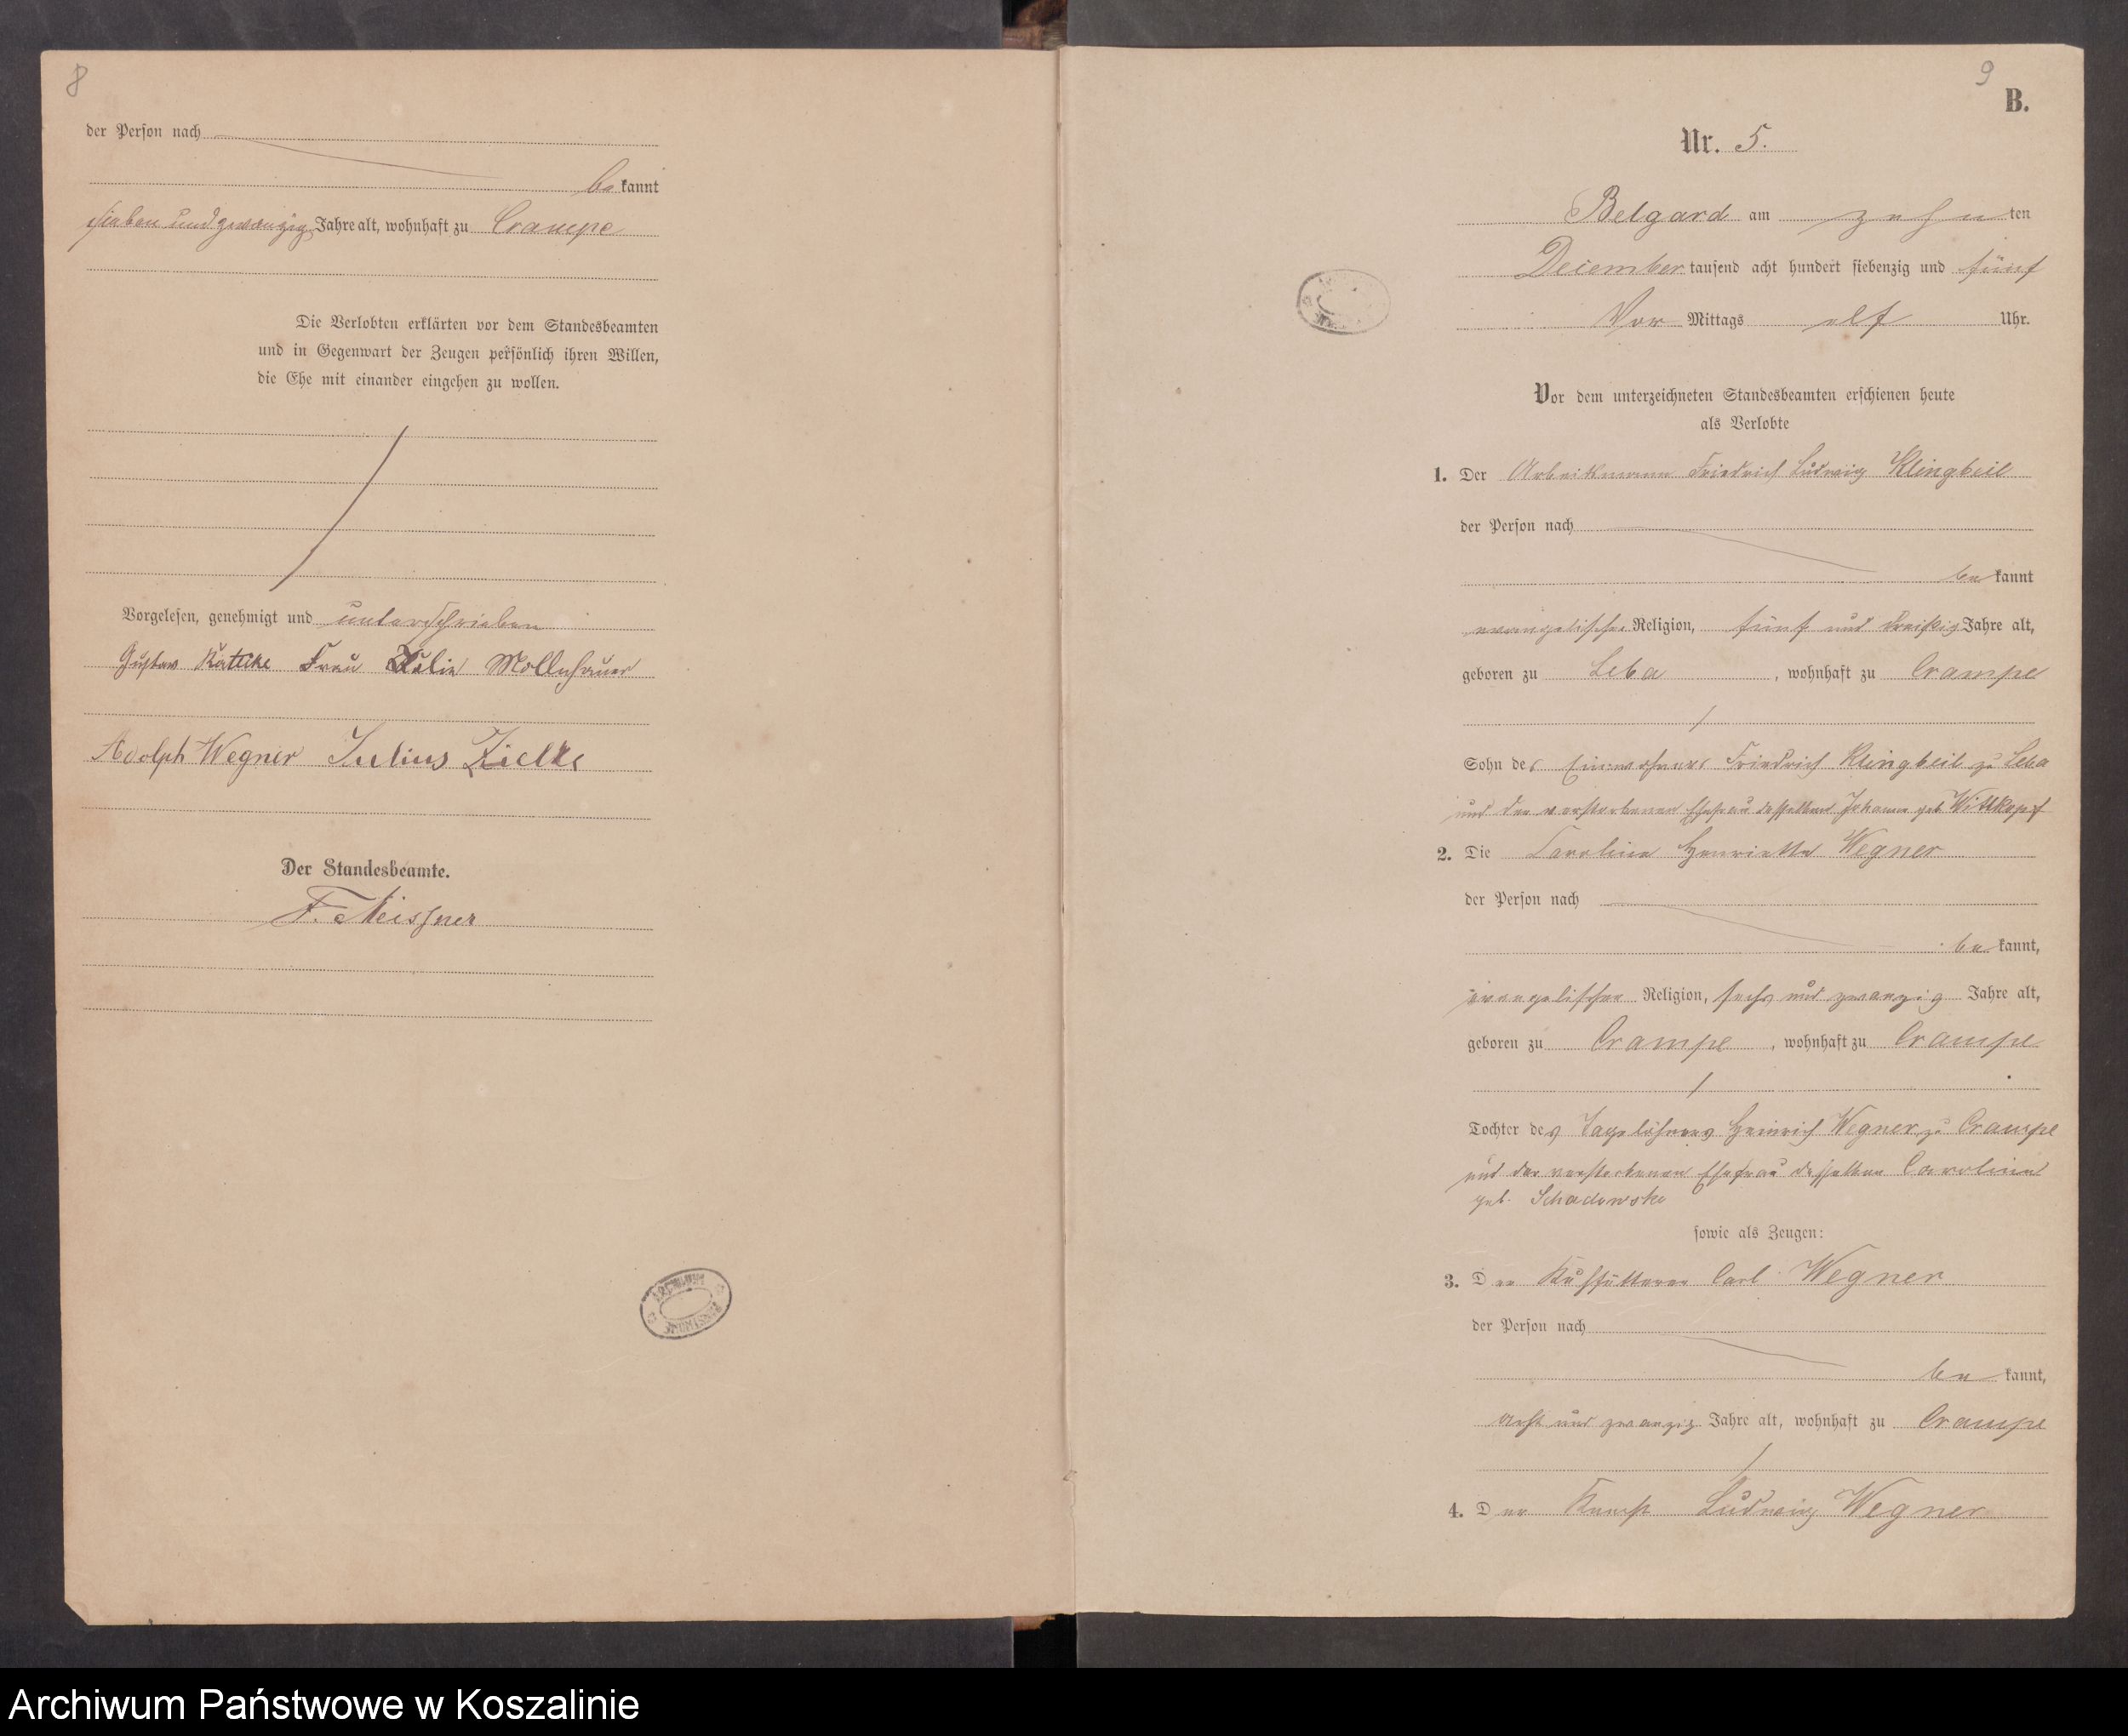 8
der Person nach
bekannt
sieben und zwanzig Jahre alt, wohnhaft zu Crampe
Die Verlobten erklärten vor dem Standesbeamten
und in Gegenwart der Zeugen persönlich ihren Willen,
die Ehe mit einander eingehen zu wollen.
Vorgelesen, genehmigt und unterschrieben
Gustav Frau Julie Mollnhauer
Adolph Wegner Julius Zielke
Der Standesbeamte.
F. Meissner
ARCHIWUM
9
B.
Nr. 5.
Belgard am zehnten
December tausend acht hundert siebenzig und fünf
Vor Mittags elf Uhr.
Vor dem unterzeichneten Standesbeamten erschienen heute
als Verlobte
1. Der Arbeitsmann Friedrich Ludwig Klingbeil
der Person nach
bekannt
evangelischer Religion, fünf und dreißig Jahre alt,
geboren zu Leba, wohnhaft zu Crampe
Sohn des Einwohners Friedrich Klingbeil zu Leba
und der verstorbenen Ehefrau desselben Johanne geb Wittkopf
2. Die Caroline Henriette Wegner
der Person nach
bekannt,
evangelischer Religion, sechs und zwanzig Jahre alt,
geboren zu Crampe, wohnhaft zu Crampe
Tochter des Tagelöhners Heinrich Wegner zu Crampe
und der verstorbenen Ehefrau desselben Caroline
geb. Schadowske
sowie als Zeugen:
3. Der Kuhfütterer Carl Wegner
der Person nach
bekannt,
acht und zwanzig Jahre alt, wohnhaft zu Crampe
4. Der Knecht Ludwig Wegner
Archiwum Państwowe w Koszalinie